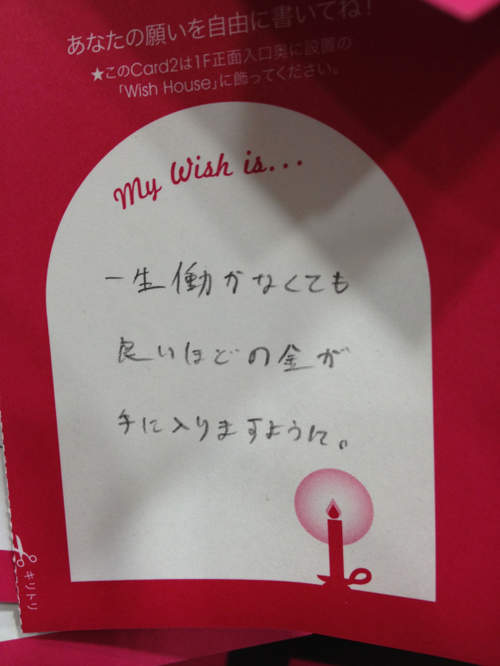 あなたの願いを自由に書いてね!
★このCard2は1F正面入口奥に設置の
「Wish House」に飾ってください。
My Wish is...
一生働かなくても
良いほどの金が
手に入りますように。
キリトリ